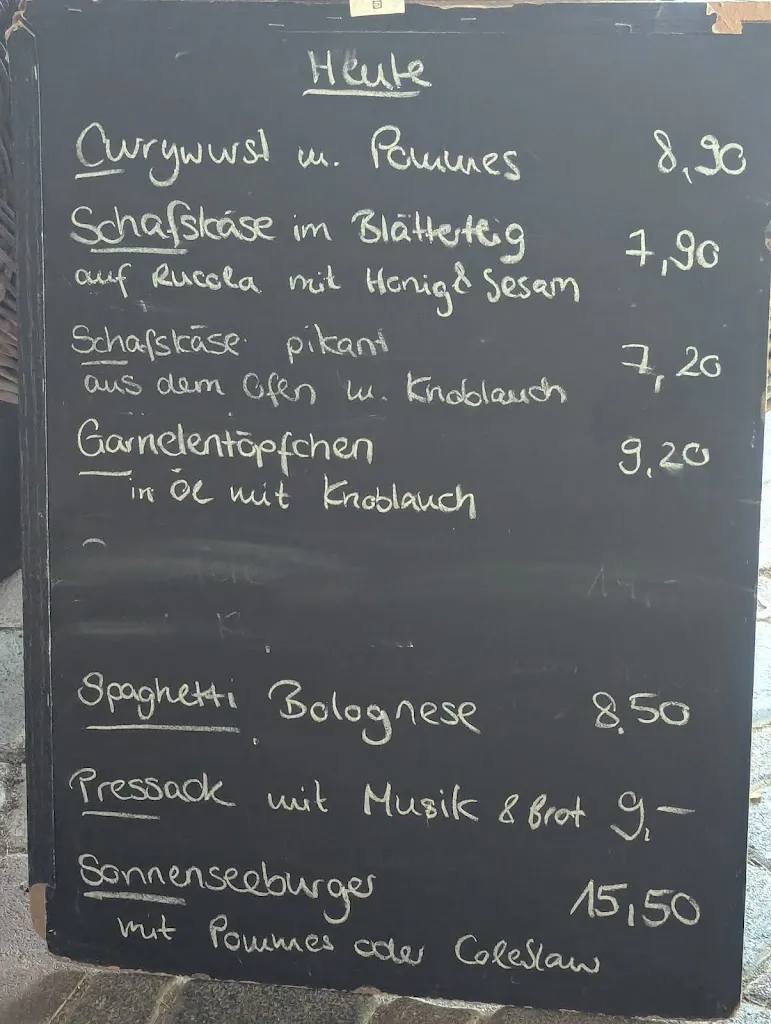 Heute
Currywurst m. Pommes 8,90
Schafskäse im Blätterteig 7,90
auf Rucola mit Honig & Sesam
Schafskäse pikant 7,20
aus dem Ofen m. Knoblauch
Garnelentöpfchen 9,20
in Öl mit Knoblauch
Spaghetti Bolognese 8,50
Pressack mit Musik & Brot 9,-
Sonnenseeburger 15,50
mit Pommes oder Coleslaw